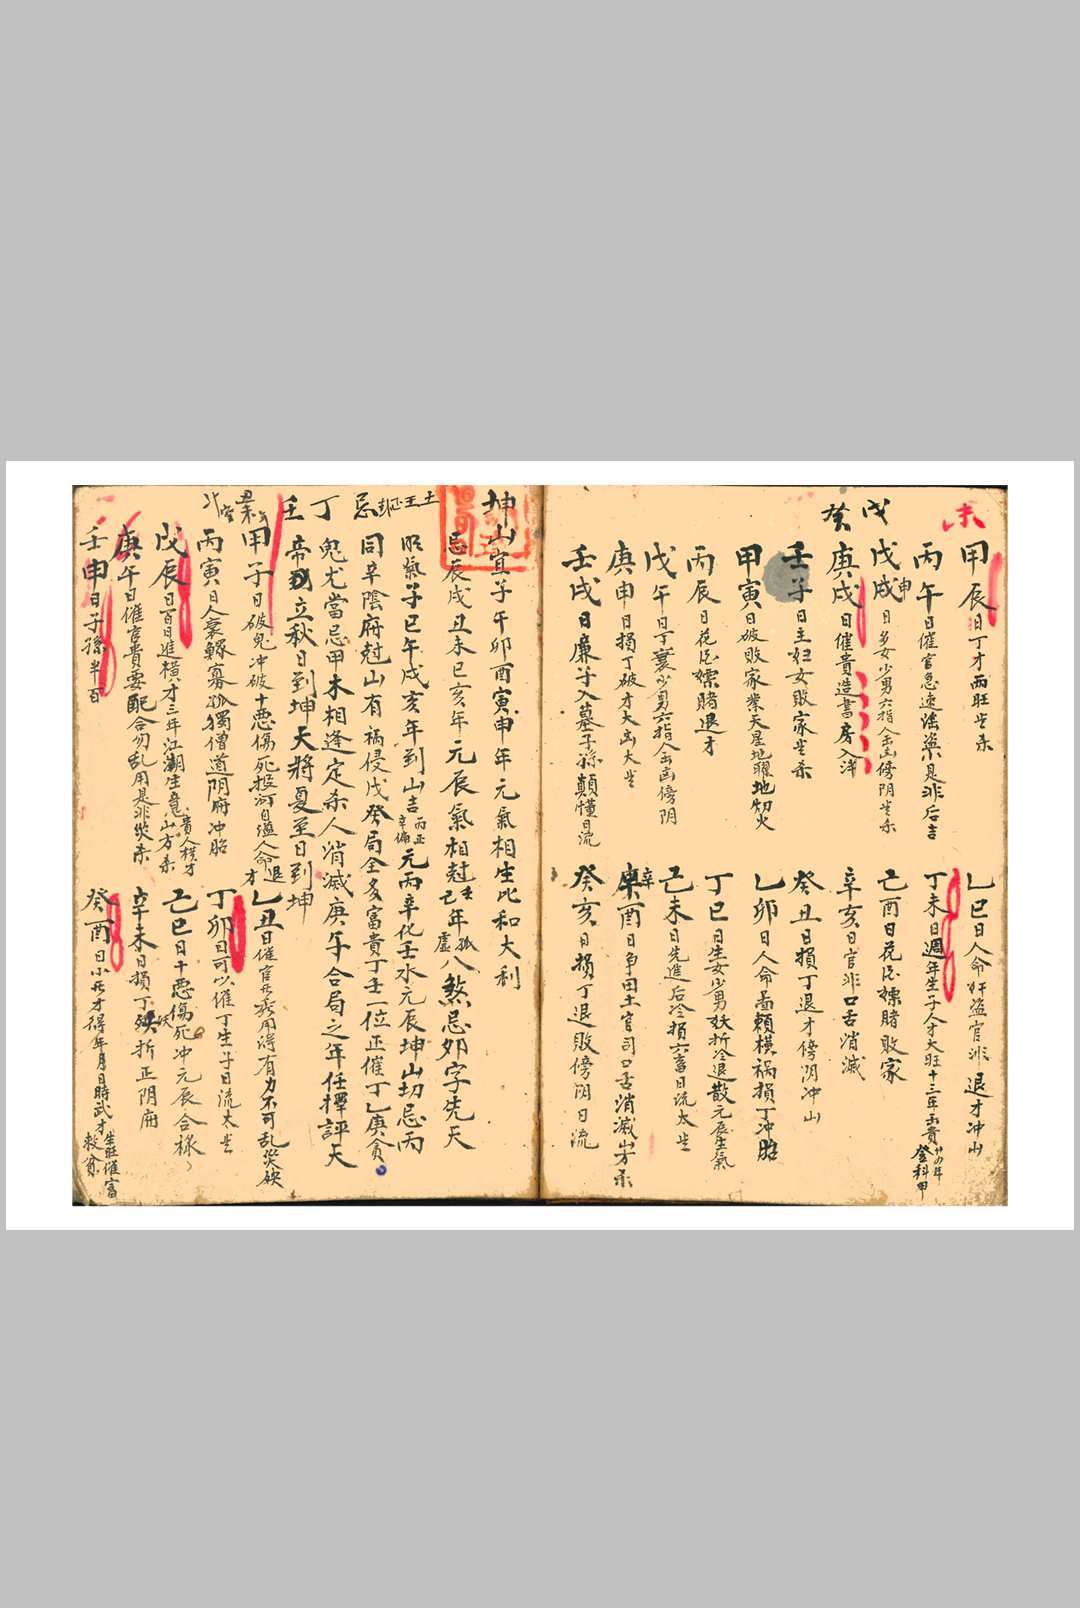 未
戊
癸
甲辰日丁才両旺
乙巳日人命奸盗官非退才冲山
丙午日催官急速是非后吉
丁未日週年生子人才大旺十三年出貴
登科甲
戊戌
申
日多女少男六指傍阴
己酉日花酒嫖賭敗家
庚戌日催貴造書房入泮
辛亥日官非口舌消滅
壬子日主妇女敗家
癸丑日損丁退才傍阴冲山
甲寅日破敗家業天星地曜地刼火
乙卯日人命啚頼横禍損丁冲胎
丙辰日花酒嫖賭退才
丁巳日生女少男妖折冷退散元辰生氣
戊午日丁衰少男六指傍阴
己未日先進后冷損六畜日流太岁
庚申日損丁破才大凶大岁
辛
酉日争田土官司口舌消滅山方杀
壬戌日廉子入墓子孫顛憧日流
癸亥日損丁退敗傍阴日流
坤山宜子午卯酉寅申年元氣相生比和大利
忌辰戌丑未巳亥年元辰氣相尅
己年
孤
虚
八煞忌卯字先天
子巳午戌亥年到山吉
丙正
辛偏
元丙辛化壬水元辰坤山刼忌丙
土王
忌
同辛陰府尅山有禍侵戊癸局全多富貴丁壬一位正催丁乙庚貪
丁
鬼尤當忌甲未相逢定杀人消滅庚午合局之年任擇評天
壬
帝
立秋日到坤天將夏至日到坤
甲子日破鬼冲破十惡傷死投河自缢人命退才
乙丑日催官用得有力不可乱災殃
丙寅日人衰鰥寡孤獨僧道阴府冲胎
丁卯日可以催丁生子日流太岁
戊辰日百日進横才三年江湖生意山方杀
貴人横才
己巳日十惡傷死冲元辰合禄
庚午日催官貴要配合勿乱用是非災杀
辛未日損丁
妖
折正阴府
壬申日子孫半百
癸酉日小才得年月日時武才
生旺催富
救貧